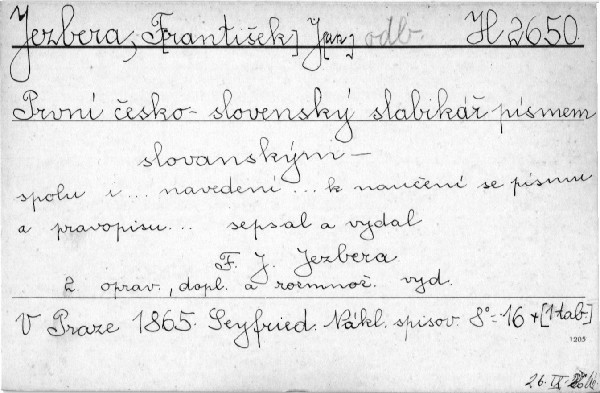 Jezbera, F[rantišek] J[an] odb. H 2650
První česko-slovenský slabikář písmem
slovanským —
spolu i... navedení... k naučení se písmu
a pravopisu... sepsal a vydal
F. J. Jezbera
2 oprav., dopl. a rozmnož. vyd.
V Praze 1865. Seyfried. Nákl. spisov. 8°-16 + [1 tab.]
1205
26. IX.